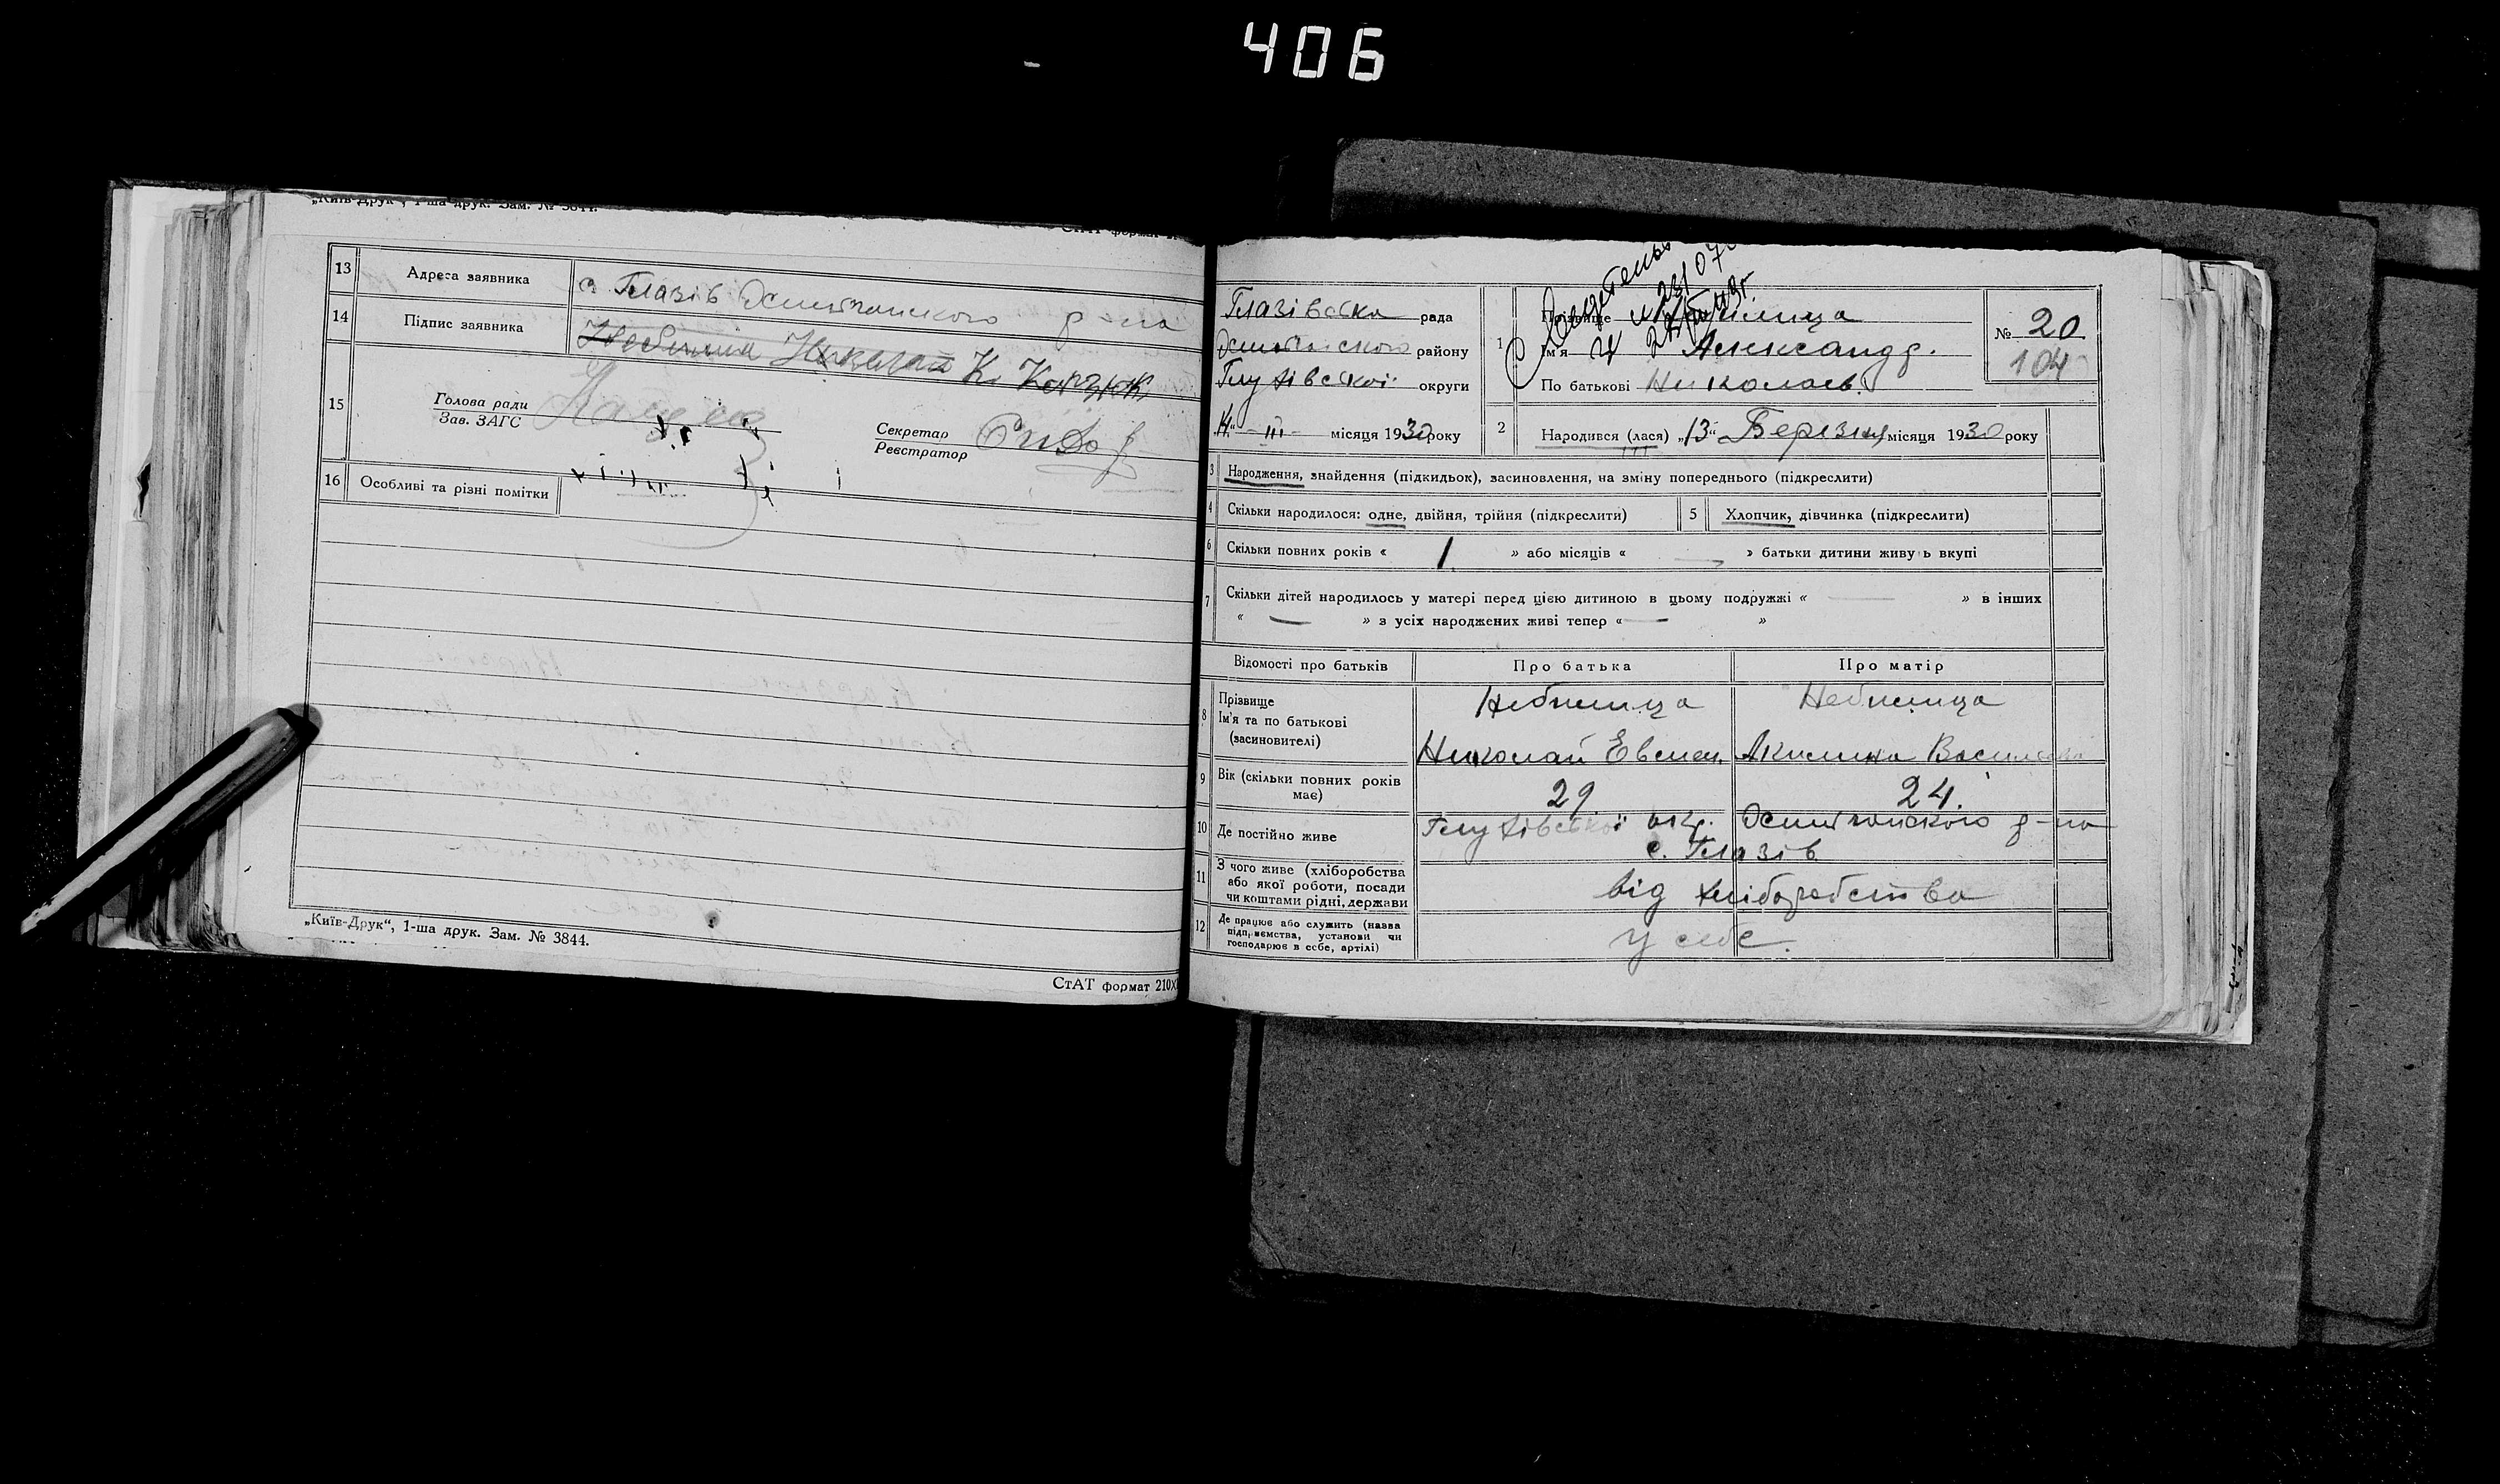 406
„Київ-Друк“, 1-ша друк. Зам. № 3844.
СтАТ формат
13 Адреса заявника с. Глазів Эсманського р-на
14 Підпис заявника Небилица Николай К. Карзюк
15 Голова ради
Зав. ЗАГС
Секретар
Реєстратор
16 Особливі та різні помітки
„Київ-Друк“, 1-ша друк. Зам. № 3844.
СтАТ формат 210×
Глазівська рада
Эсманського району
Глухівської округи
„14“ III місяця 1930 року
1 Прізвище
Ім'я Александр.
По батькові Николаев.
№ 20
104
2 Народився (лася) „13“ Березня місяця 1930 року
III
3 Народження, знайдення (підкидьок), засиновлення, на зміну попереднього (підкреслити)
4 Скільки народилося: одне, двійня, трійня (підкреслити) 5 Хлопчик, дівчинка (підкреслити)
6 Скільки повних років « 1. » або місяців « — » батьки дитини живуть вкупі
7 Скільки дітей народилось у матері перед цією дитиною в цьому подружжі « — » в інших
« — » з усіх народжених живі тепер « — »
Відомості про батьків Про батька Про матір
8 Прізвище Небилица Небилица
Ім'я та по батькові
(засиновителі) Николай Евмен. Акилина Васильевна
9 Вік (скільки повних років має) 29 24.
10 Де постійно живе Глухівської окр. Эсманського р-на
с. Глазів
11 З чого живе (хліборобства
або якої роботи, посади
чи коштами рідні, держави від хліборобства
12 Де працює або служить (назва
підприємства, установи чи
господарює в себе, артілі) у себе.